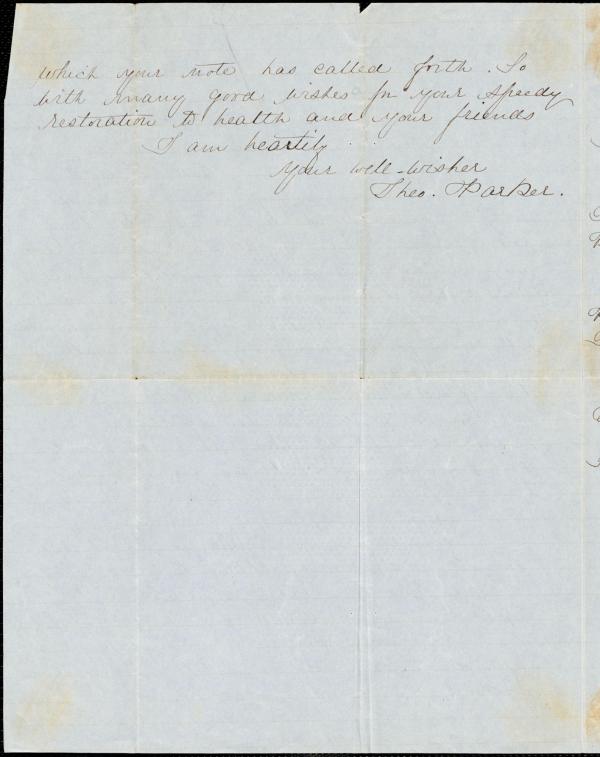 which your note has called forth. So
with many good wishes for your speedy
restoration to health and your friends
I am heartily
your well-wisher
Theo. Parker.